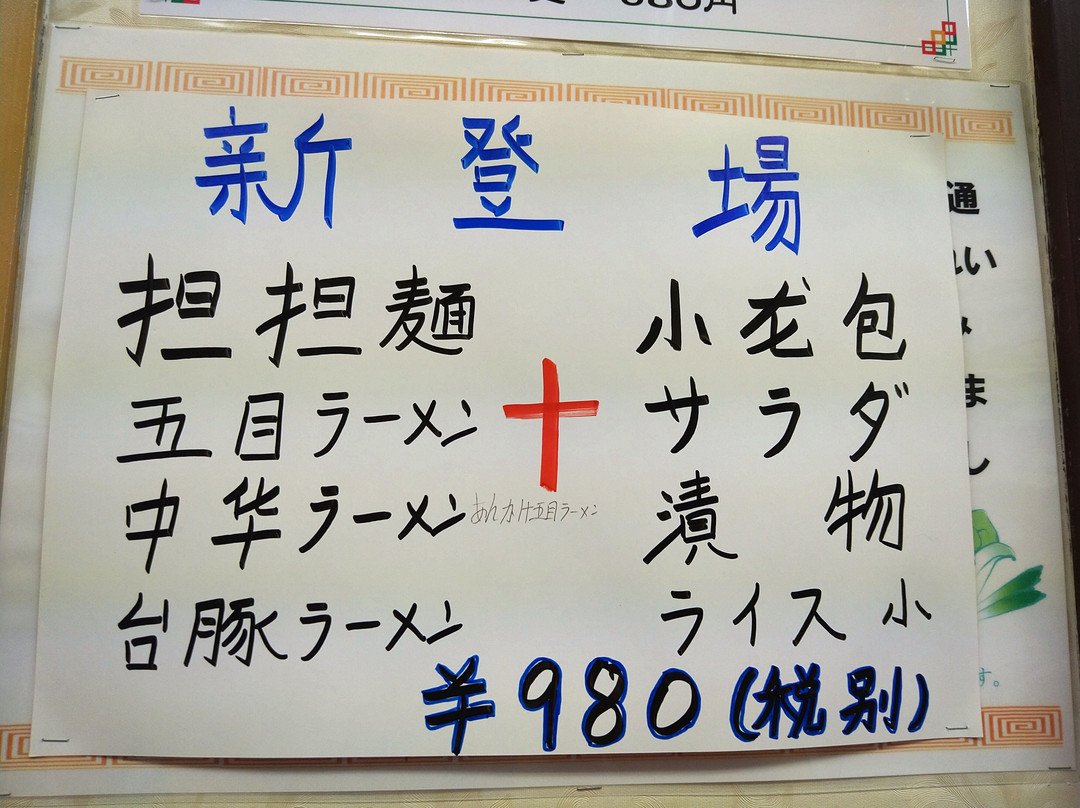 680円
新登場
担担麺
五目ラーメン
中华ラーメン
あんかけ五目ラーメン
台豚ラーメン
+
小龙包
サラダ
漬物
ライス小
¥980(税別)
通
い
ま
し
す。